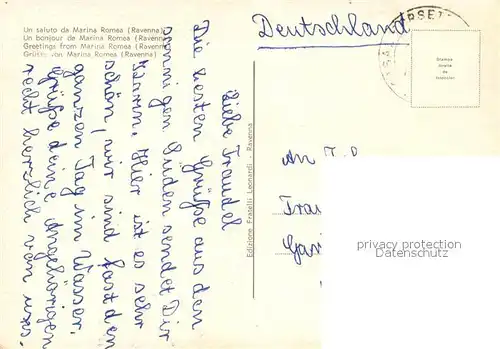 Un saluto da Marina Romea (Ravenna)
Un bonjour de Marina Romea (Ravenna)
Greetings from Marina Romea (Ravenna)
Grüsse von Marina Romea (Ravenna)
Deutschland
Liebe Traudel
Die besten Grüße aus dem
sonnigen Süden sendet Dir
Hier ist es sehr
schön, wir sind fast den
ganzen Tag im Wasser.
Grüße deine Angehörigen
recht herzlich von uns.
Edizione Fratelli Leonardi - Ravenna
An
Trau
Gar
privacy protection
Datenschutz